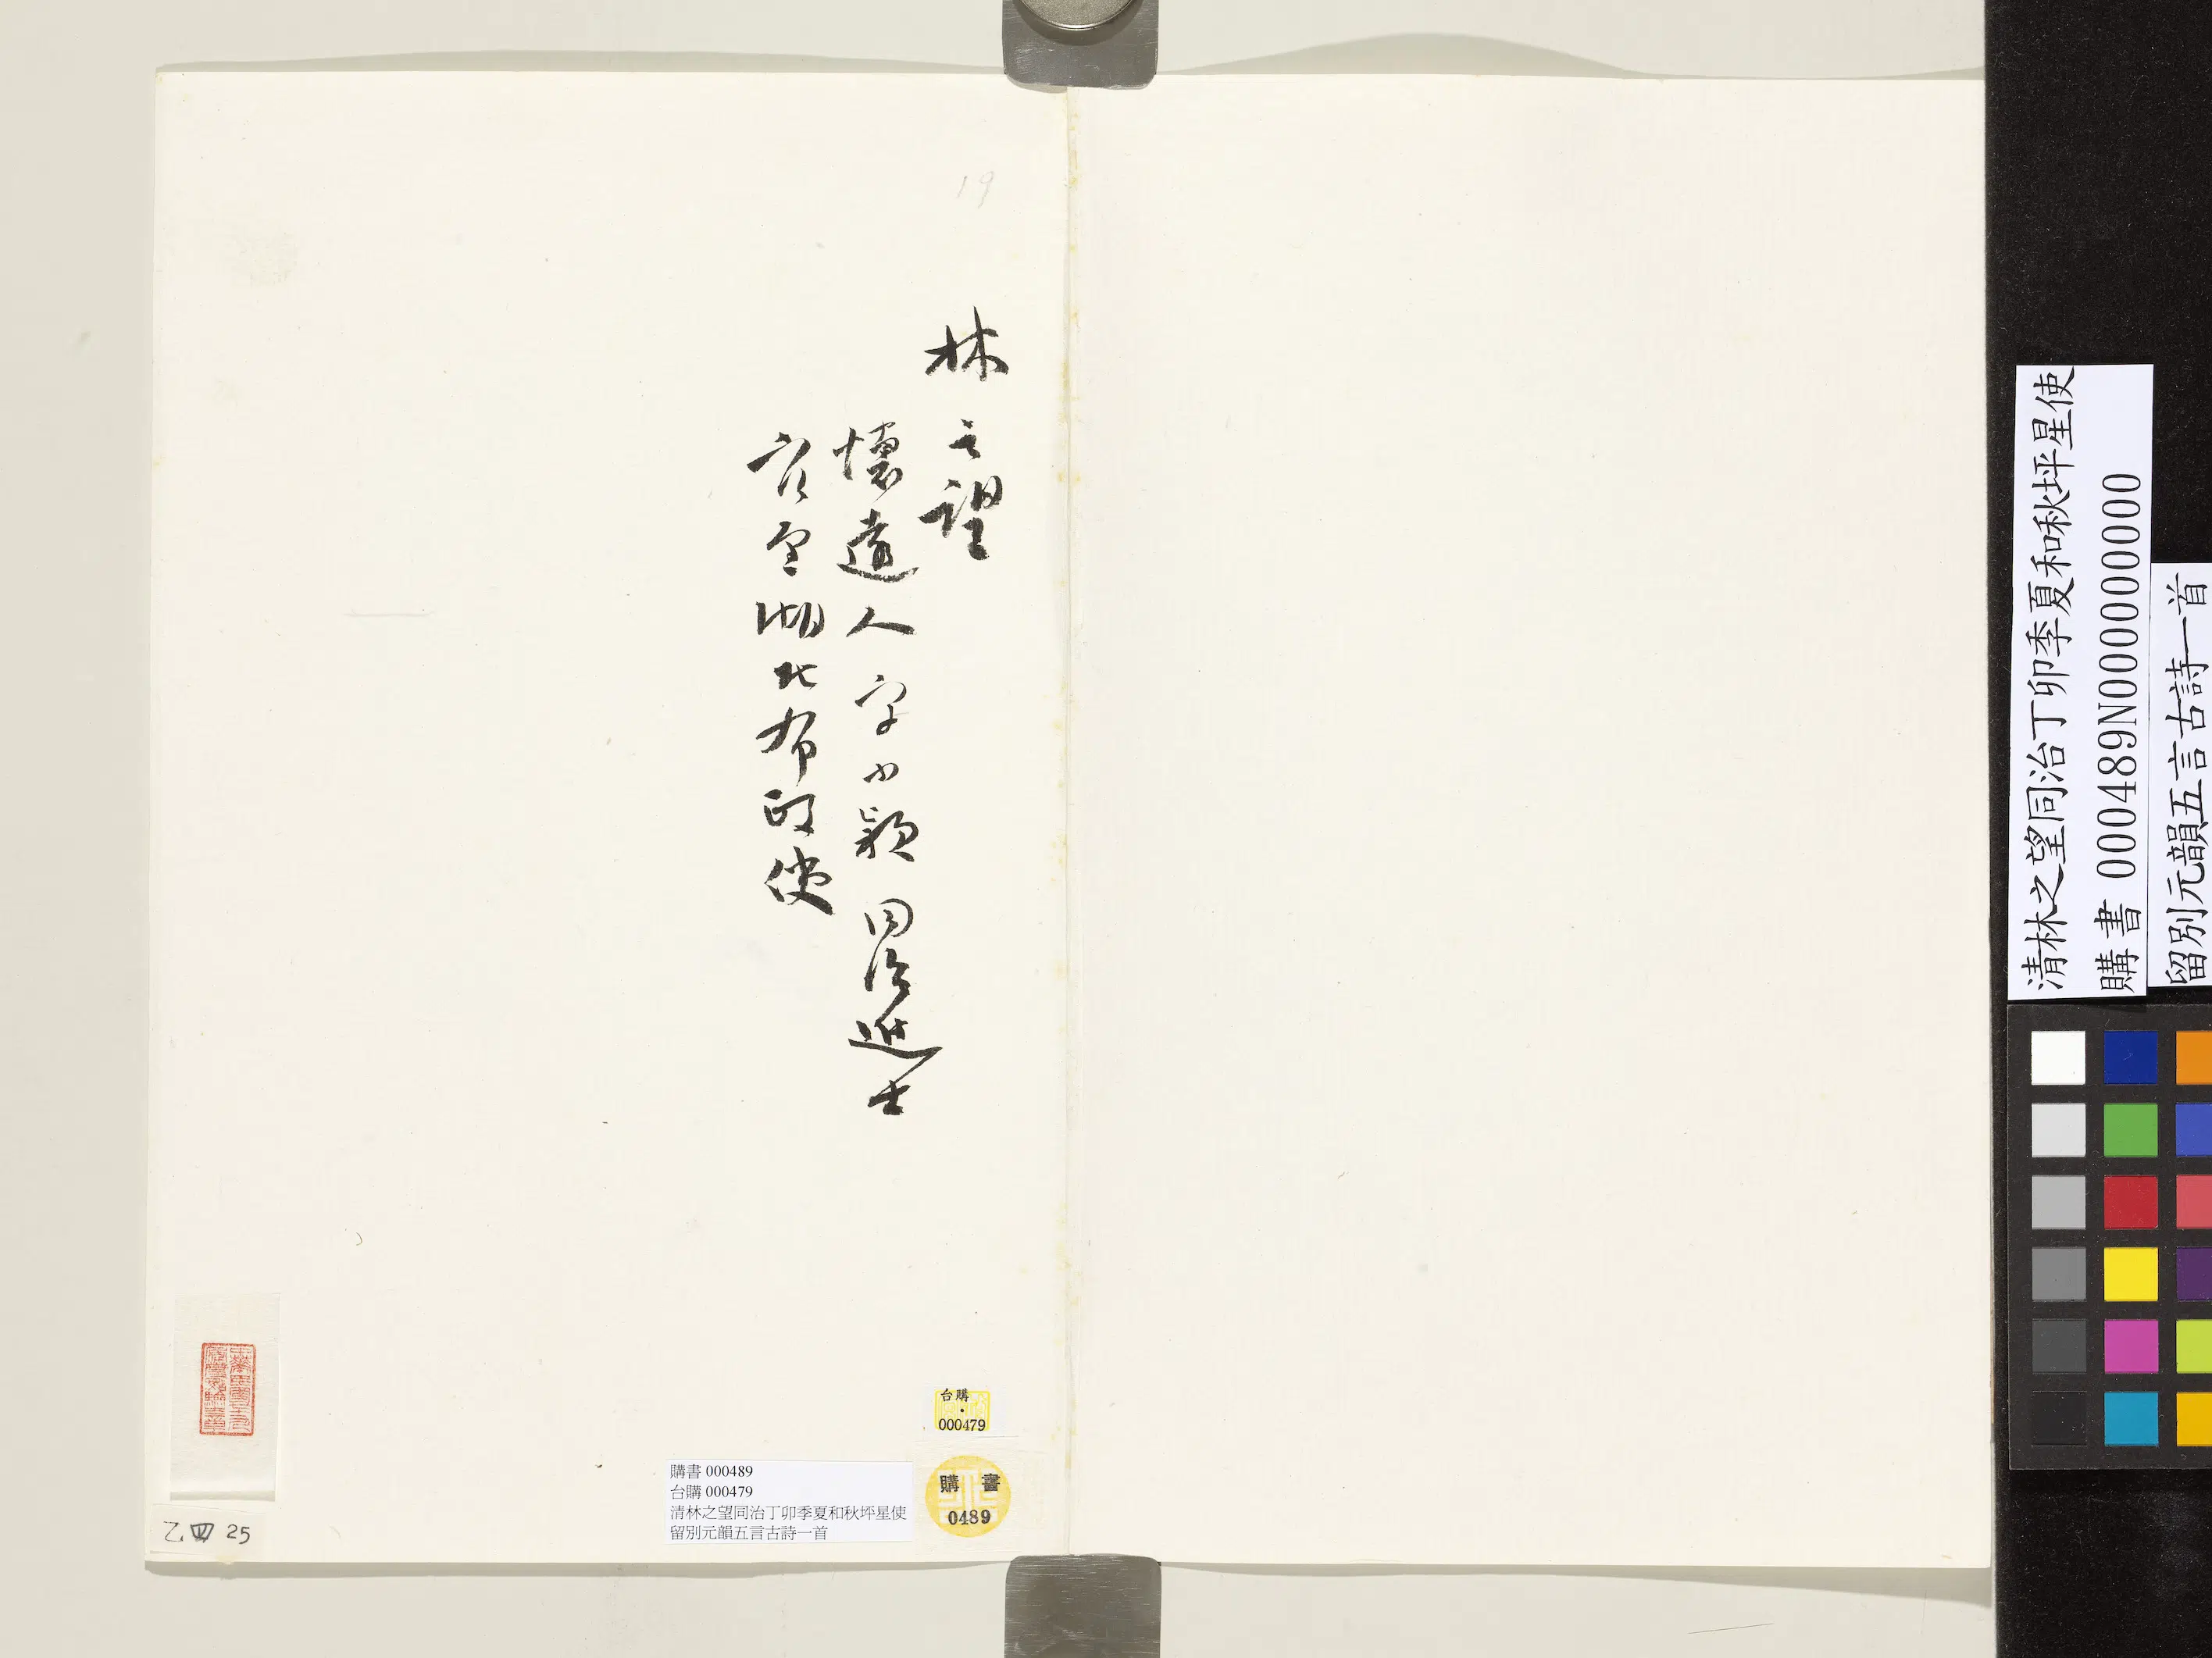 19
林之望
懷遠人字小穎同治進士
官至湖北布政使
台購
000479
購書
0489
購書 000489
台購 000479
清林之望同治丁卯季夏和秋坪星使
留別元韻五言古詩一首
乙四 25
清林之望同治丁卯季夏和秋坪星使
購書 000489N000000000
留別元韻五言古詩一首